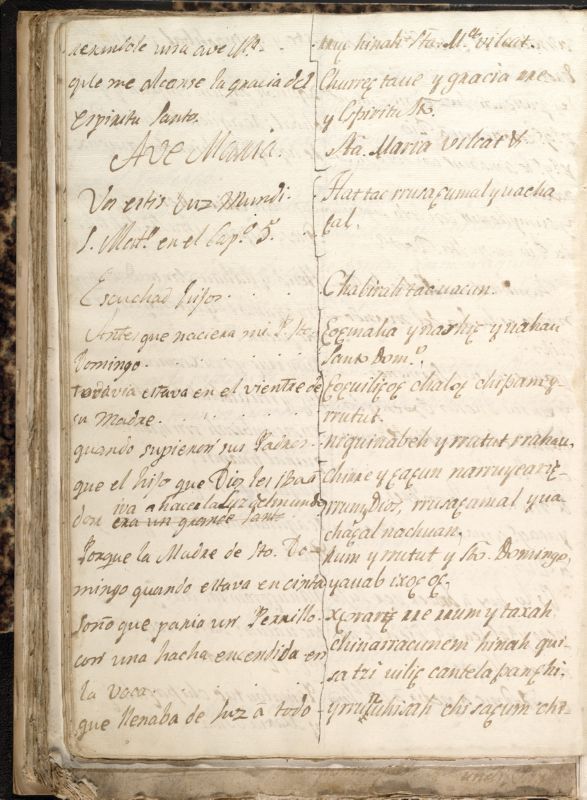 resandole una ave Mª.
qụe me alcanse la gracia del
espiritu santo.
Ave Maria.
Vos estis Luz Mundi.
S. Matᵒ. en el Capᵒ. 5.
Escuchad hijos.
Antes que naciera mi Pᵉ. Stᵒ.
Domingo.
todavia estava en el vientre de
su Madre.
quando supieron sus Padres
que el hijo que Dios les iba a
dar iva a hacer la Luz del mundo
era un grande santo
Porque la Madre de Sto. Do-
mingo quando estava en cinta
soño que paria un Perrillo
con una hacha encendida en
la voca.
que llenaba de luz a todo
hinah Sta. Mª. vilcat.
y gracia re
y Espiritu Sto.
Sta. Maria vilcat &
Hat tac rrusaçumal y uacha
çal.
Chabirah tac uacun.
y nashiç y uahau
Santo Domᵒ.
chaloç chi pam y-
rrutut.
niquinabeh y rrutut rrahau,
y caçun narruyearic-
rrum Dios, rrusaçamal y ua-
chaçal nachuan,
kum y rrutut y Sto. Domingo,
yauab ixoc oc,
re mum y taxah
Chinarracunem hinah qui-
sa tzi uiliç cantela panchi,
chi saçum chi-